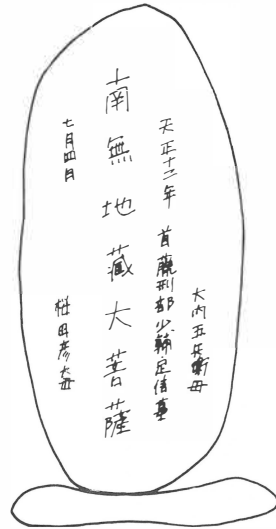 大内五兵衛母
天正十二年 首藤刑部少輔定信墓
南無地蔵大菩薩
七月四日 桂田彦大母